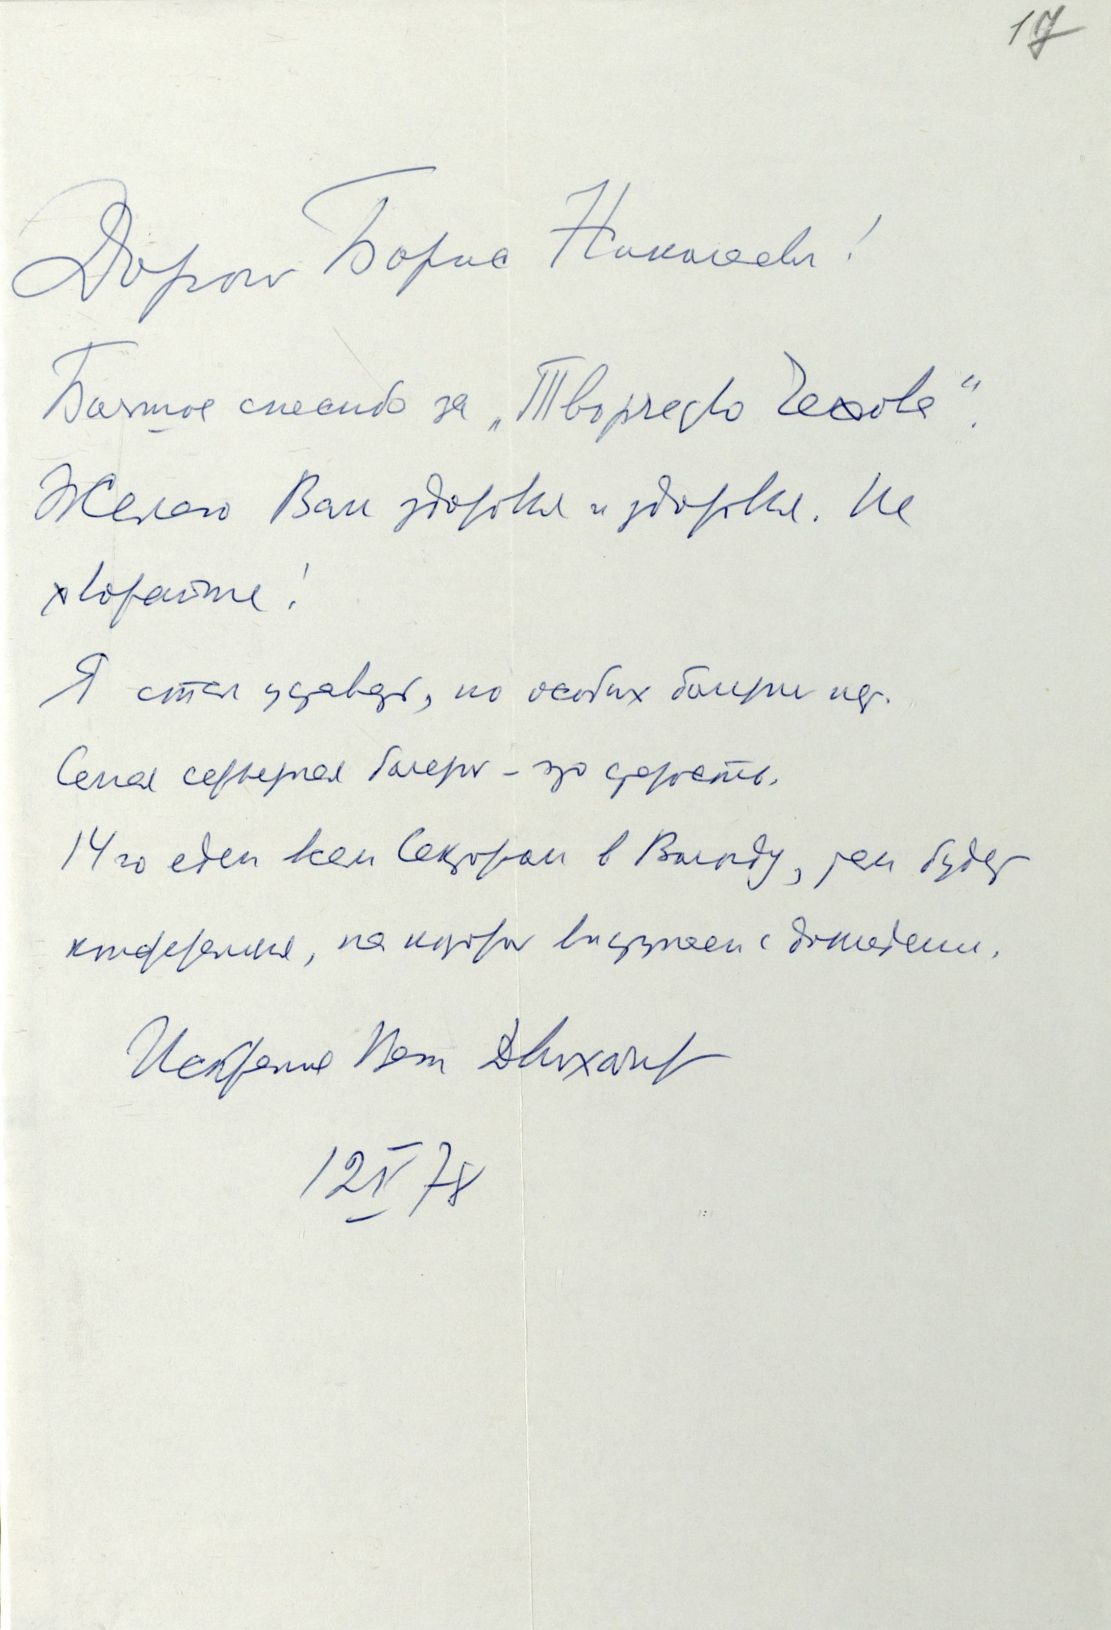 17
Дорогой Борис Николаевич!
Большое спасибо за „Творчество Чехова“.
Желаю Вам здоровья и здоровья. Не
хворайте!
Я стал уставать, но особых болезней нет.
Самая серьезная болезнь – это старость.
14го едем всем Сектором в Вологду, там будет
конференция, на которой выступаем с докладами.
Искренне Ваш ДЛихачев
12 V 78